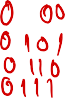 0 00
0 101
0 110
0 111